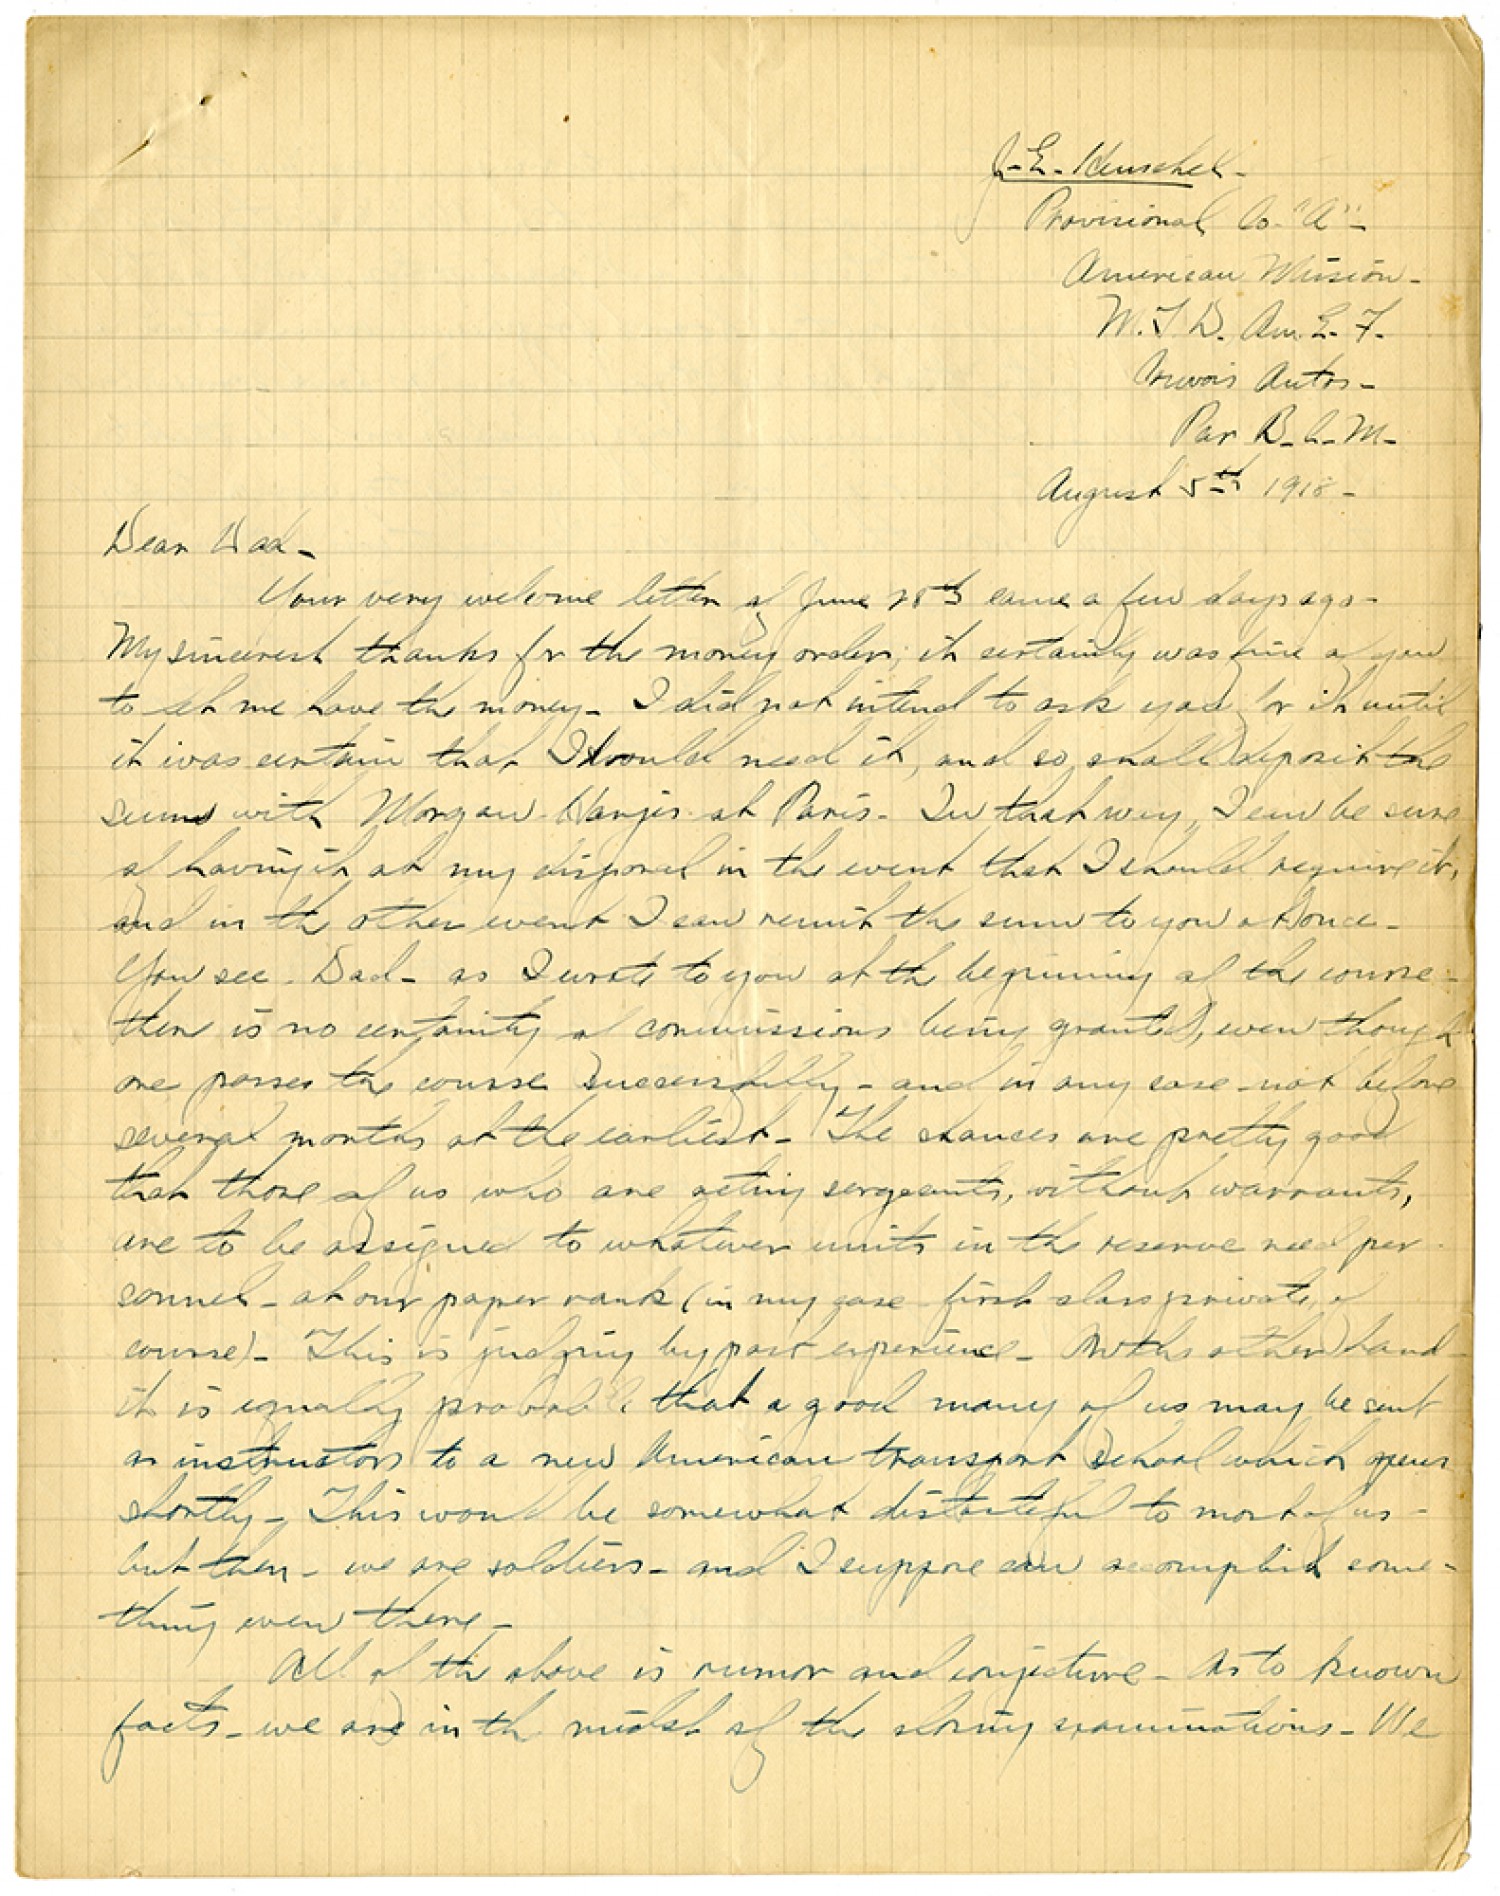 J. E. Henschel -
Provisional Co. "A" -
American Mission -
M. T. D. Am. E. F.
Convois Autos -
Par B. C. M -
August 5th 1918 -
Dear Dad -
Your very welcome letter of June 28th came a few days ago -
My sincerest thanks for the money order; it certainly was fine of you
to let me have the money - I did not intend to ask you for it until
it was certain that I would need it, and so, shall deposit the
sum with Morgan-Harjes at Paris - In that way, I can be sure
of having it at my disposal in the event that I should require it,
and in the other event I can remit the sum to you at once -
You see - Dad - as I wrote to you at the beginning of the course -
there is no certainity of commissions being granted, even though
one passes the course successfully - and in any case not before
several months at the earliest - The chances are pretty good
that those of us who are acting sergeants, without warrants,
are to be assigned to whatever units in the reserve need per-
sonnel - at our paper rank (in my case first class private, of
course) - This is judging by past experience - On the other hand -
it is equally probable that a good many of us may be sent
as instructors to a new American transport school which opens
shortly - This would be somewhat distasteful to most of us -
but then - we are soldiers - and I suppose can accomplish some-
thing even there -
All of the above is rumor and conjecture - As to known
facts - we are in the midst of the closing examinations - We